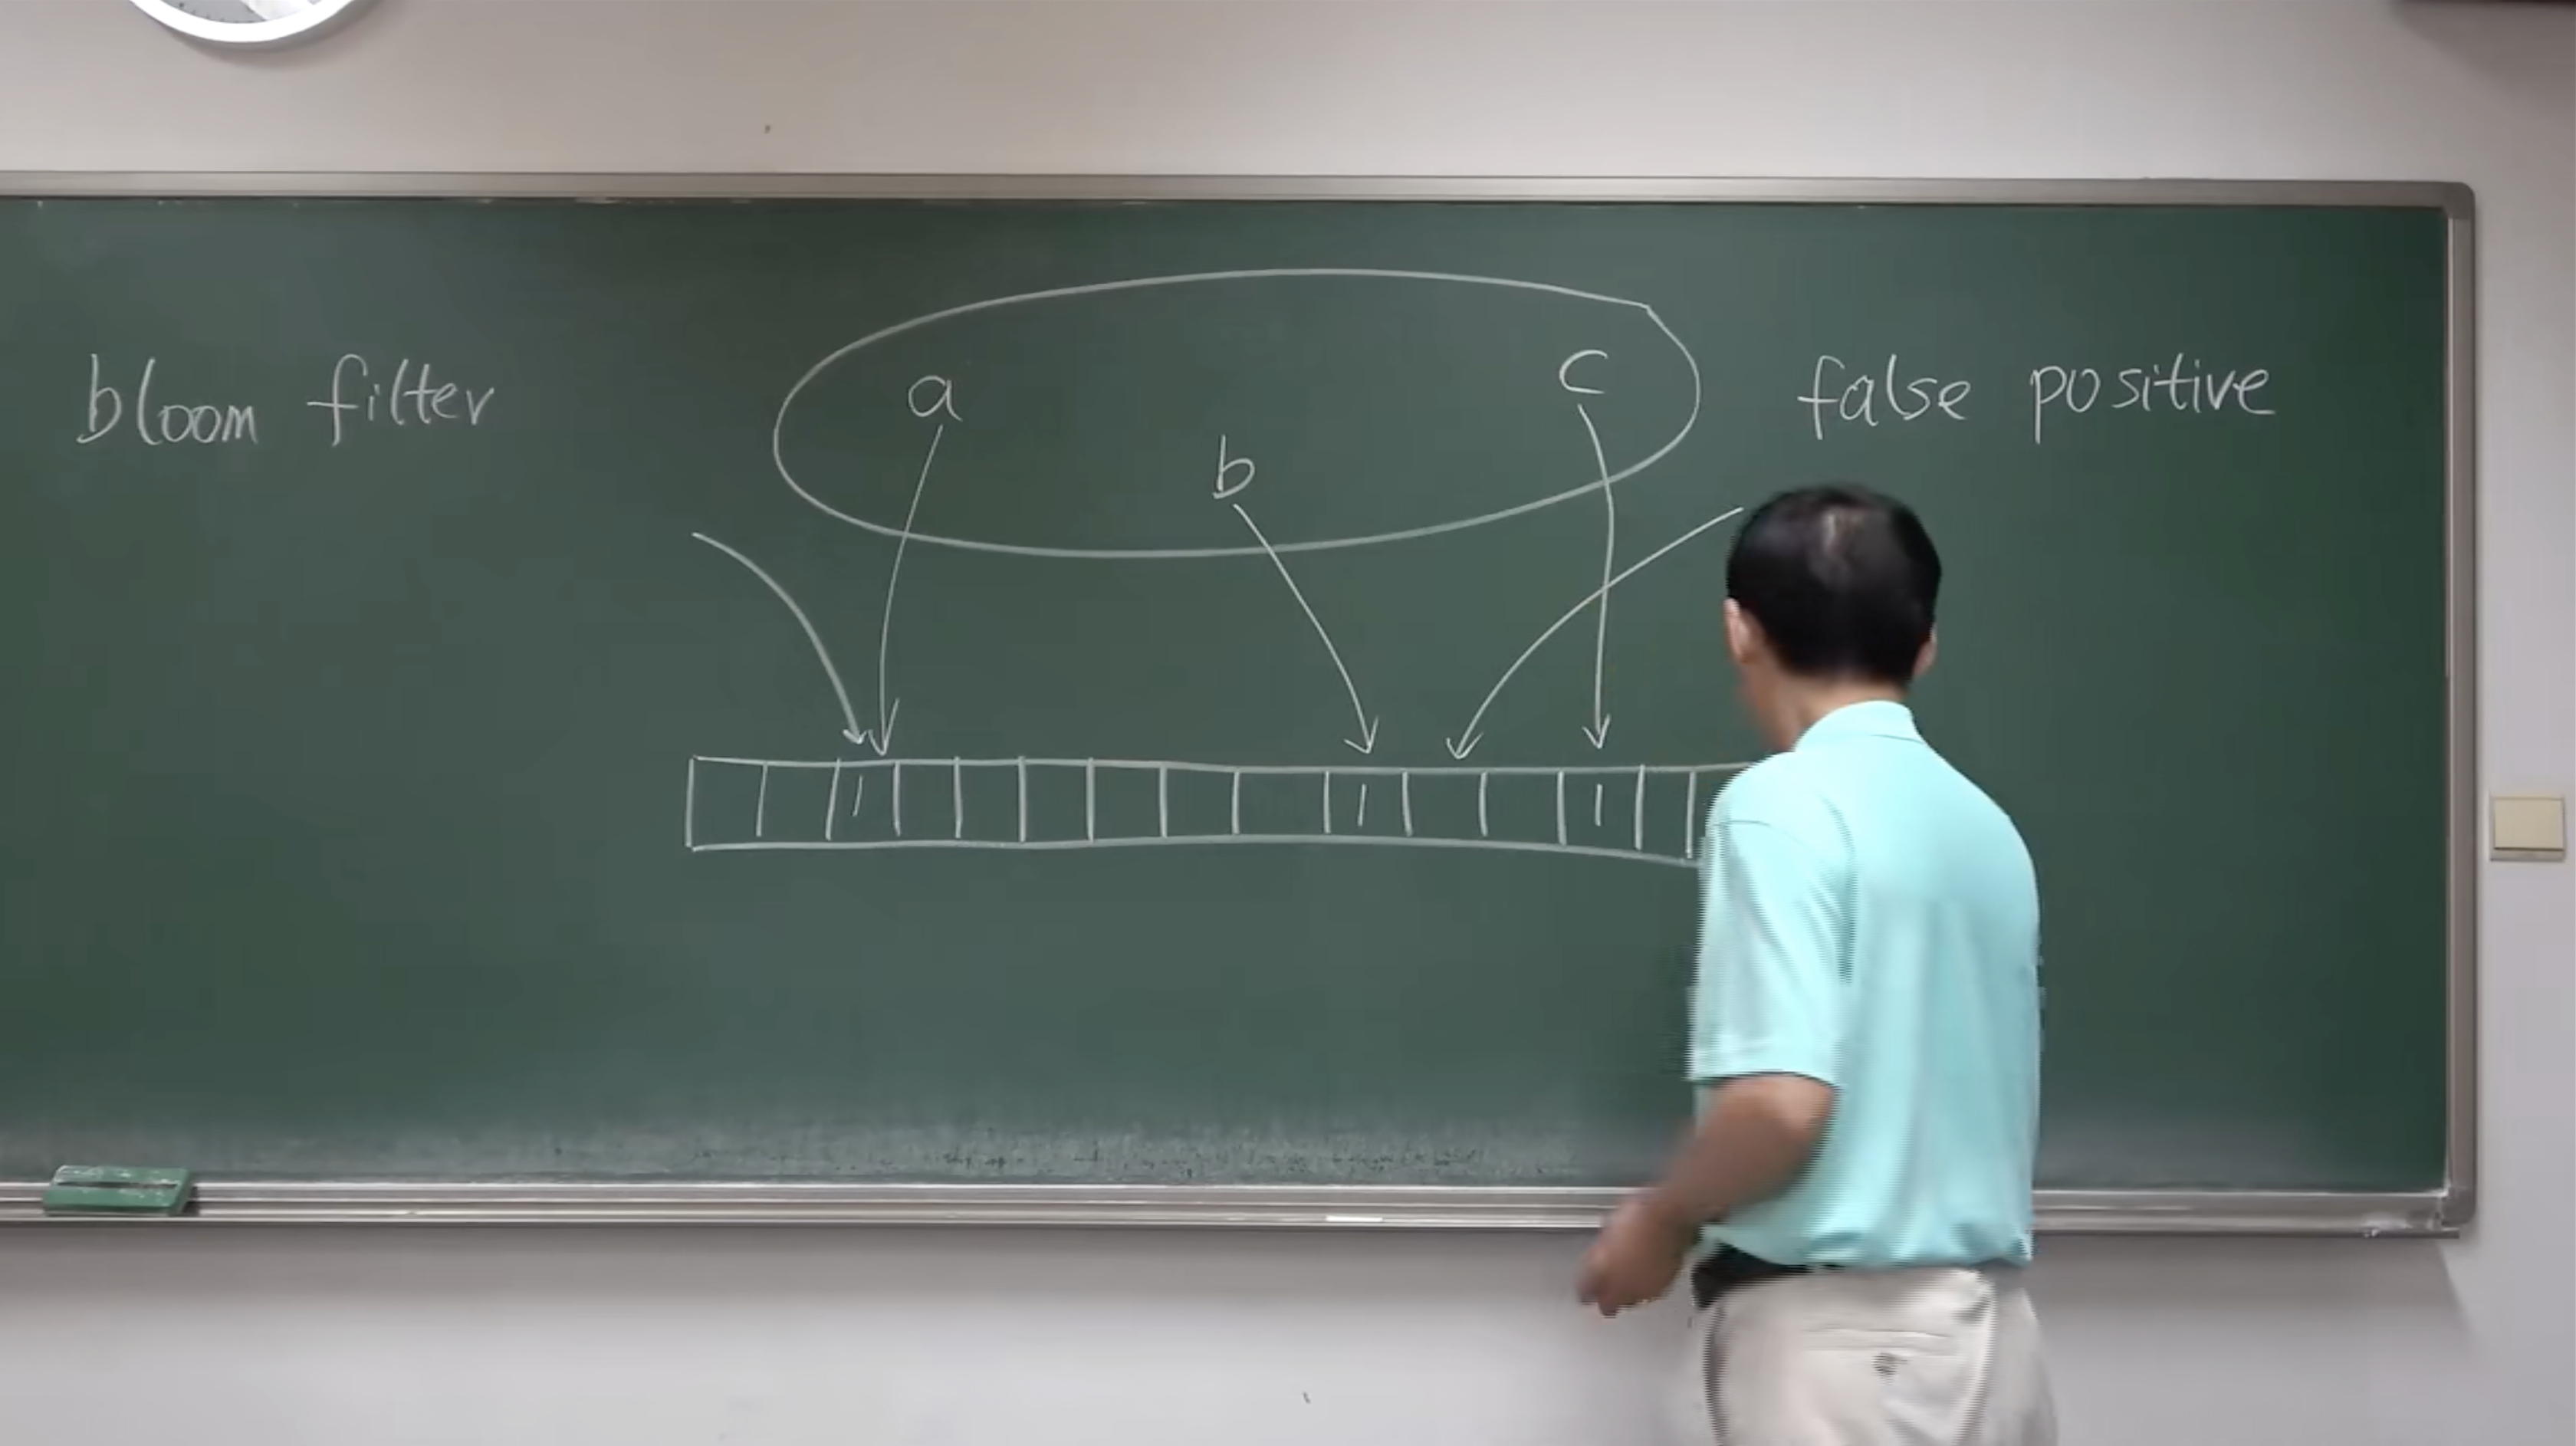 bloom filter
a
b
c
false positive
1 1 1